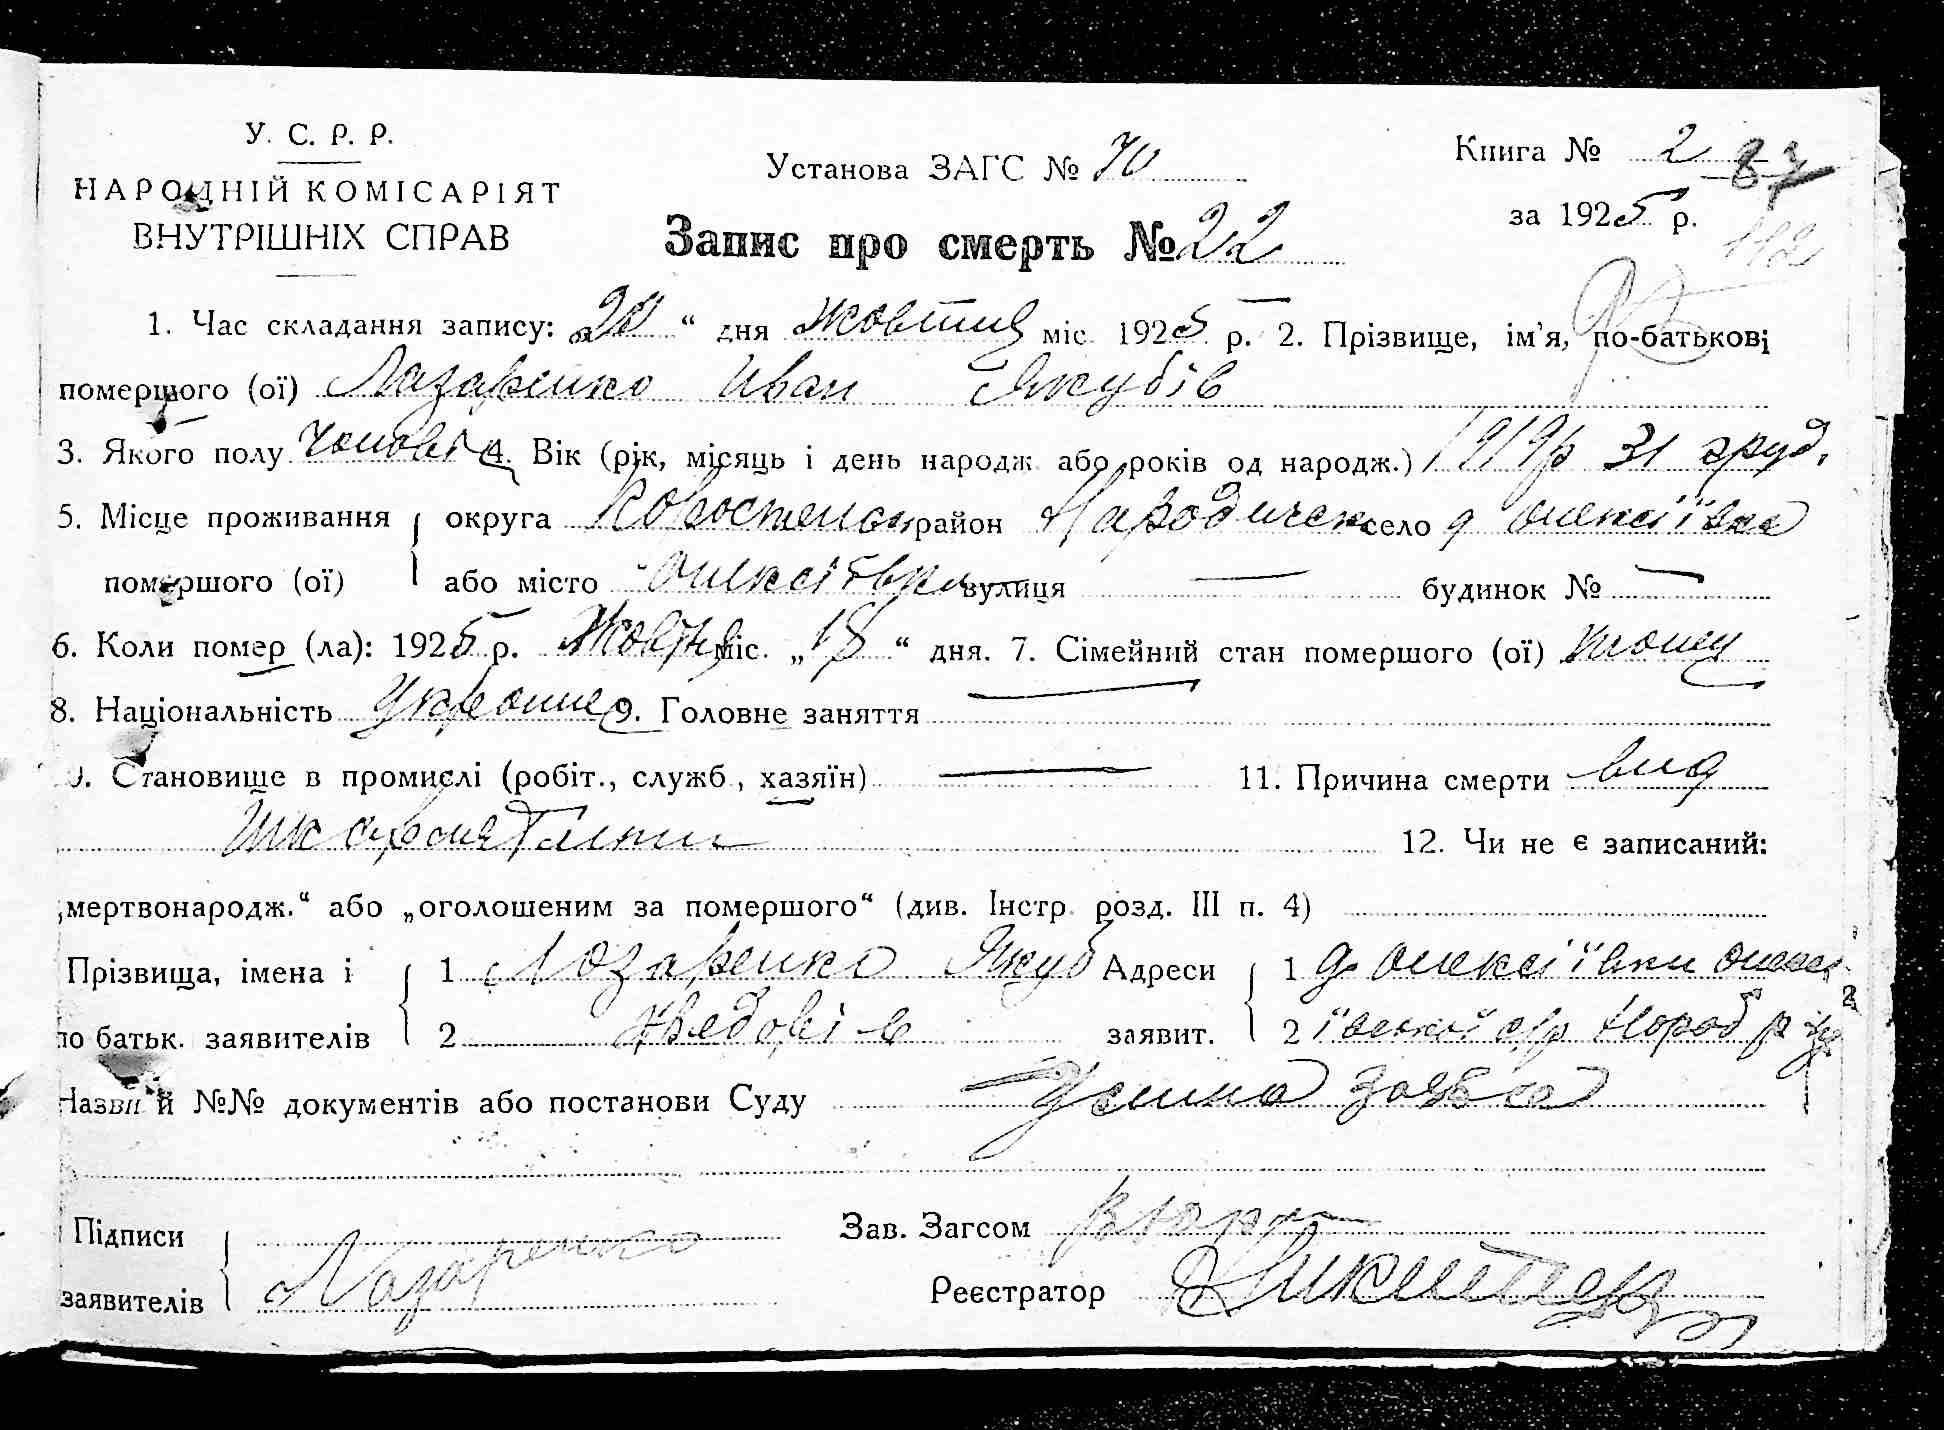 У. С. Р. Р.
НАРОДНІЙ КОМІСАРІЯТ
ВНУТРІШНІХ СПРАВ
Установа ЗАГС № 70
Книга № 2 87
за 1925 р.
112
Запис про смерть № 22
1. Час складання запису: „20“ дня жовтня міс. 1925 р. 2. Прізвище, ім'я, по-батькові
помершого (ої) Лазаренко Иван Якубів
3. Якого полу чоловіч 4. Вік (рік, місяць і день народж. або років од народж.) 1919р 31 груд.
5. Місце проживання округа Коростенск район Народическ село д Олексіївка
помершого (ої) або місто Олексіївка вулиця — будинок № —
6. Коли помер (ла): 1925 р. Жовтня міс. „18“ дня. 7. Сімейний стан помершого (ої)
8. Національність Украинец 9. Головне заняття —
10. Становище в промислі (робіт., служб., хазяїн) — 11. Причина смерти вид
Шкарлятини 12. Чи не є записаний:
„мертвонародж.“ або „оголошеним за помершого“ (див. Інстр. розд. III п. 4)
Прізвища, імена і 1 Лозаренко Якуб Адреси 1 д. Олексіївки Олексі
по батьк. заявителів 2 Хведорів заявит. 2 ївської с/р Народ р
Назви й №№ документів або постанови Суду Усина заява
Підписи Зав. Загсом
заявителів Лазаренко Реєстратор